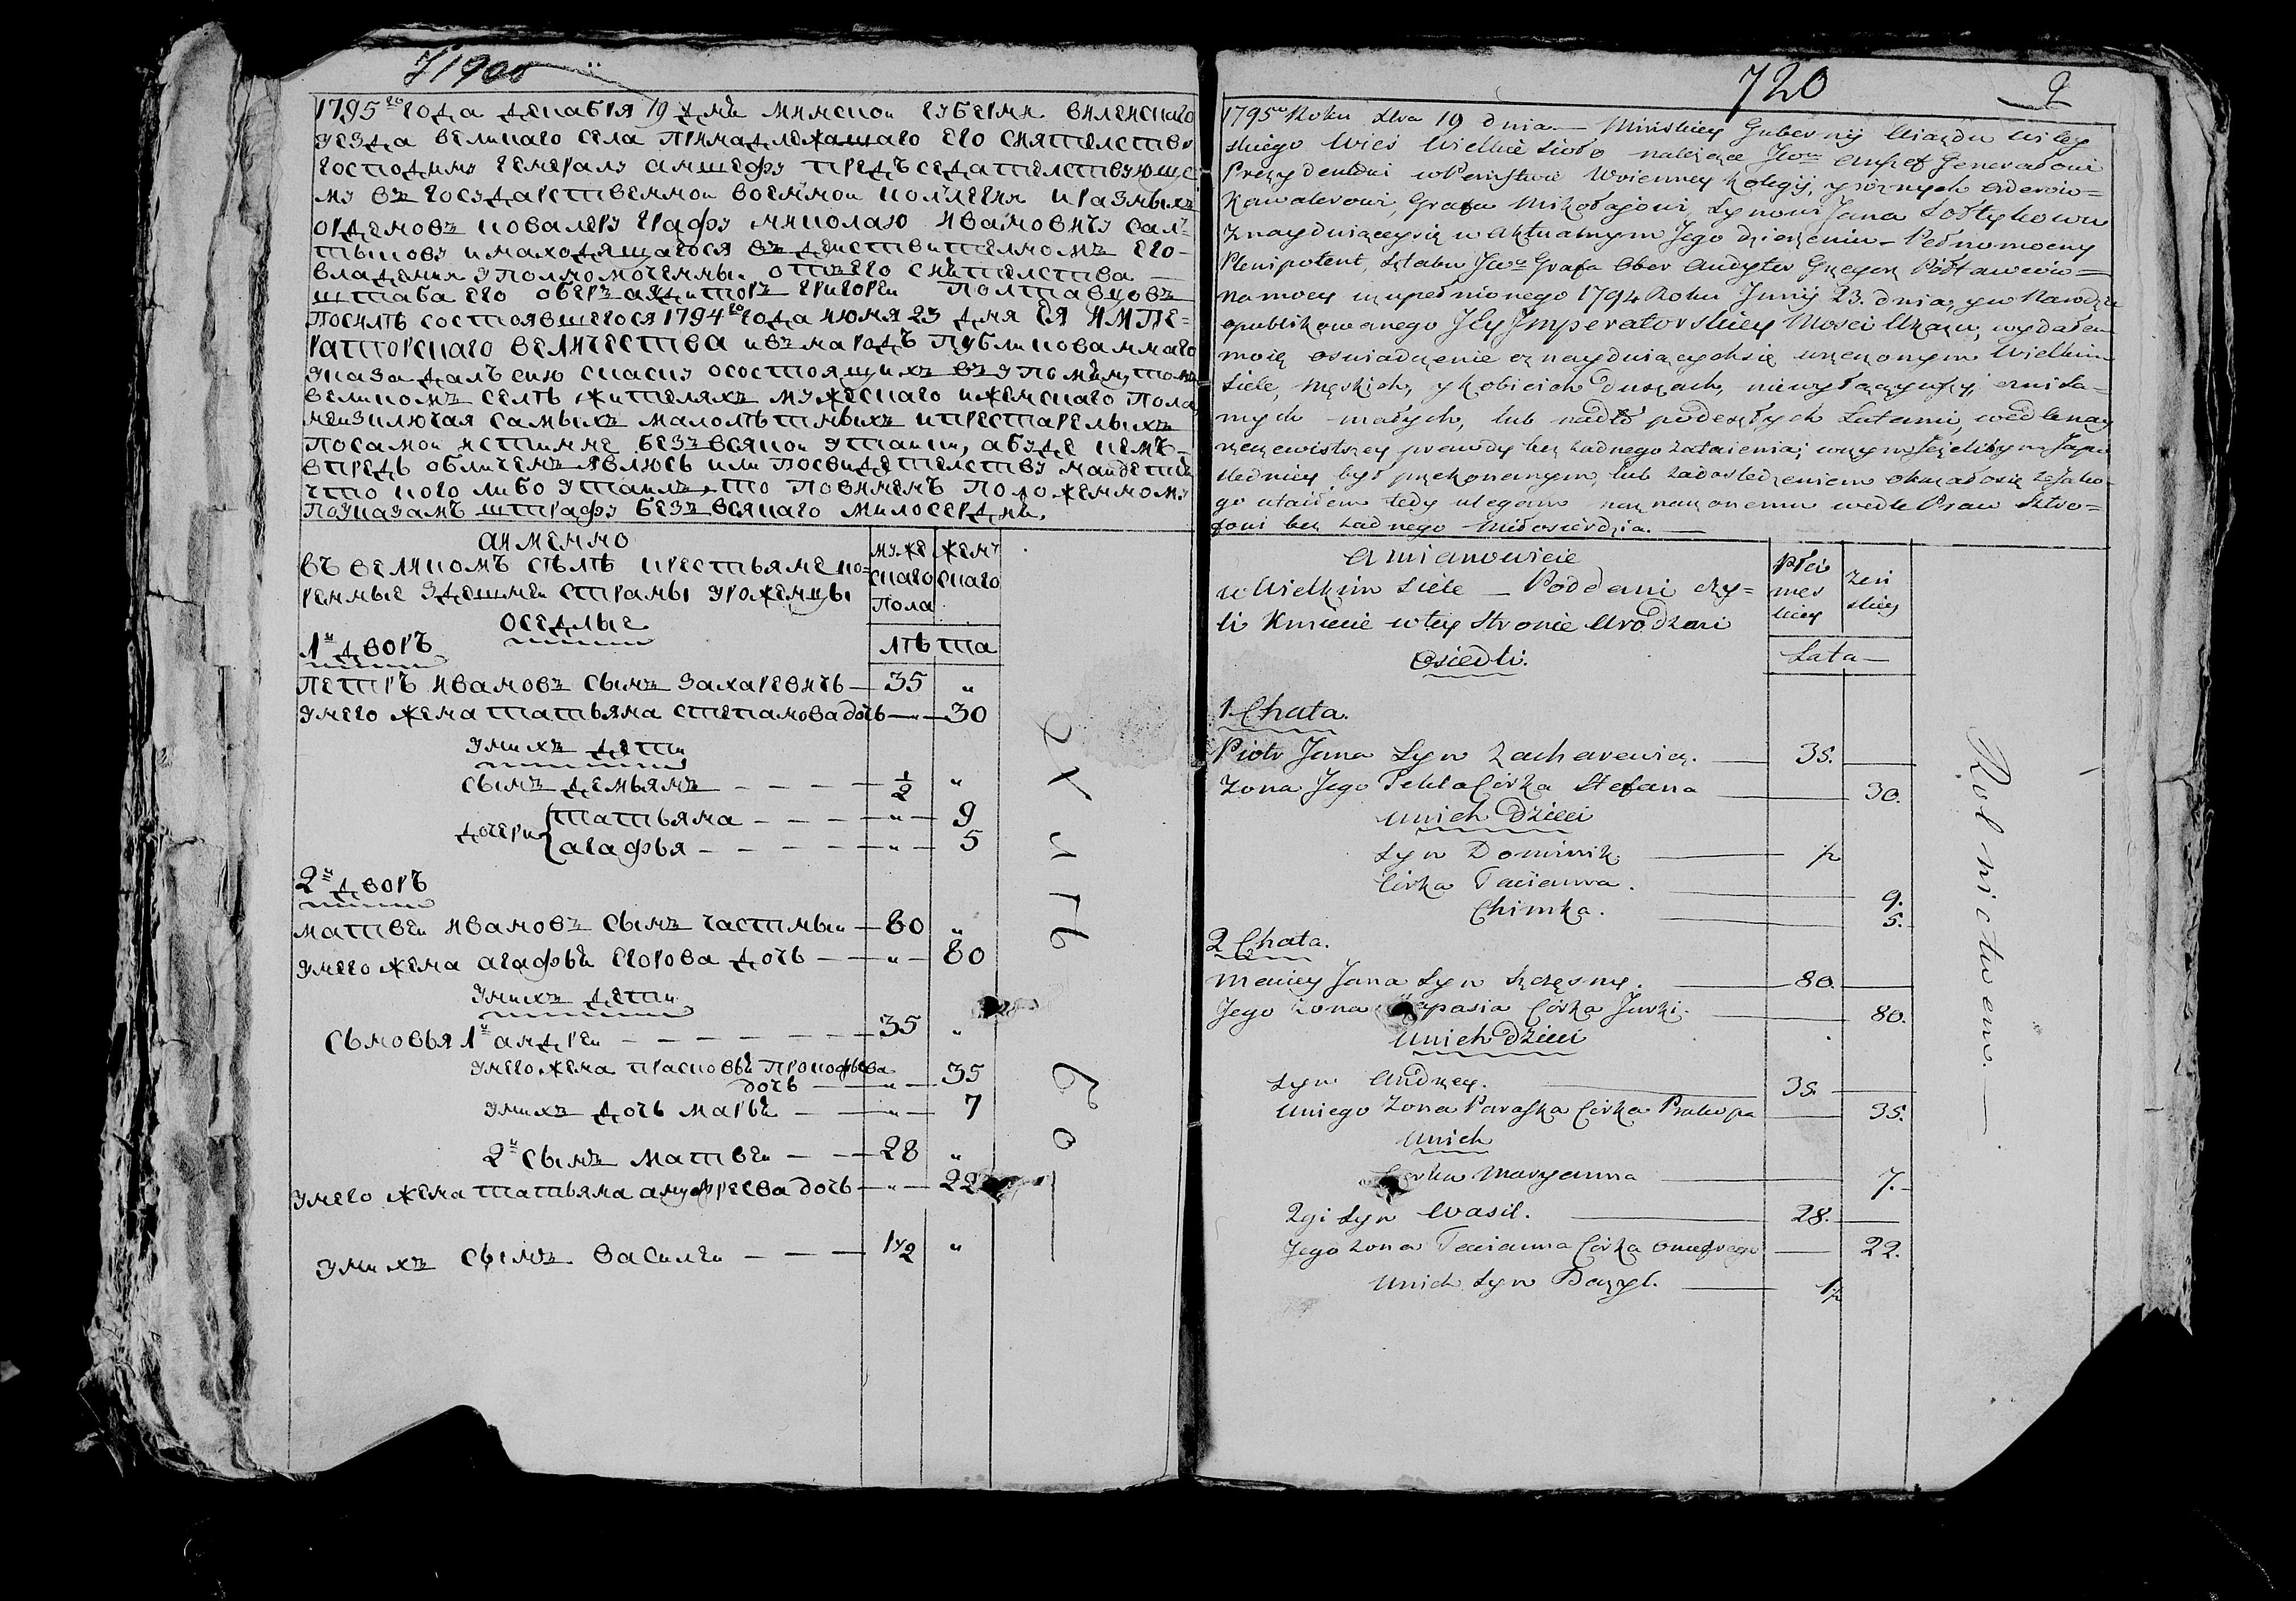 71900
1795го года декабря 19 дня минской губерни виленскаго
уезда великаго села принадлежащаго его сиятелству
господину генералу аншефу предъседателствующе
му въ государственной военной коллегии и разныхъ
орденовъ ковалеру графу николаю ивановичу сал-
тыкову и находящагося въ действителномъ его
владении уполномоченны отъ его сиятелства
штаба его оберъ аудиторъ григореи полтавцовъ
посилѣ состоявшегося 1794го года июня 23 дня ея импе=
раторскаго величества и въ народъ публикованнаго
указа далъ сию скаску о состоящихъ въ упомянутомъ
великомъ селѣ жителяхъ мужескаго и женскаго пола
неизключая самыхъ малолѣтныхъ и престарелыхъ
по самои истинне безъ всякои утаики, а буде кемъ
впредь обличенъ явлюсь или по свидетелству наидется
что кого либо утаилъ, то повиненъ положенному
по указамъ штрафу безъ всякаго милосердия.
а имянно
въ великомъ сѣлѣ крестьяне ко=
ренные здешней страны уроженцы
оседлые
муже
скаго
жен
скаго
пола
лѣта
1й дворъ
петръ ивановъ сынъ захаревичь — 35 "
у него жена татьяна степанова дочь — " — 30
у нихъ дети
сынъ демьянъ — 1/2 "
дочери татьяна — " — 9
агафья — " — 5
2й дворъ
матвеи ивановъ сынъ частныи — 80 "
у него жена агафья егорова дочь — " — 80
у нихъ дети
сыновья 1й андреи — 35 "
у него жена прасковья прокофьева
дочь — " — 35
у нихъ дочь марья — " — 7
2й сынъ матвеи — 28 "
у него жена татьяна ануфреева дочь — " — 22
у нихъ сынъ василеи — 1 1/2 "
720
2
1795o Roku Xbra 19 dnia — Mińskiey Gubernij Ujazdu Wiley
skiego Wieś Wielkie Sioło należące Jwu Anszef Generałowi
Prezydentowi w Państwie Wojenney Kolegij, y różnych Orderów=
Kawalerowi, Grafu Mikołajowi Synowi Jana Sołtykowu
Znayduiącysię w Aktualnym Jego dzierzeniu — Pełnomocny
Plenipotent, Sztabu Jwo Grafa Ober Audyter Grzegorz Półtawców=
na mocy uzupełnionego 1794 Roku Junij 23. dnia, y w Narodzie
opublikowanego Jey Imperatorskiey Mości Ukazu, wydałem
moię oświadczenie o znayduiącychsię w rzeczonym Wielkim
Siele, męskich, y kobiecich Duszach, niewyłączywszy, ani sa=
mych małych, lub nadto podeszłych Latami, wedle nay
rzeczewistszey prawdy bez żadnego zataienia; w czym jeżeliby
był przekonanym, lub za dośledzeniem okazałosię żeżako
go utaiłem tedy ulegam naznaczonemu wedle Praw Sztro=
fowi bez żadnego miłosierdzia. —
a mianowicie
w Wielkim Siele — Poddani czy=
li Kmiecie w tey Stronie Urodzeni
Osiedli.
Płci
męs
kiey
żeń
skiey
Lata —
1 Chata.
Piotr Jana Syn Zacharewicz. — 35. —
Żona Jego Tekla Córka Stefana — 30.
U nich Dzieci
Syn Dominik — 1/2
Córka Tacianna. — 9.
Chimka. — 5.
2 Chata.
Maciey Jana Syn Szczęsny. — 80. —
Jego żona apasia Córka Jurki. — 80.
U nich Dzieci
Syn Andrzey. — 35 —
U niego Żona Paraszka Córka Prakopa — 35.
U nich
Córka Maryanna — 7.
2gi Syn Wasil. — 28. —
Jego żona Tacianna Córka Onufrego — 22.
U nich Syn Bazyl. — 1 1/2
Rolnictwem. —